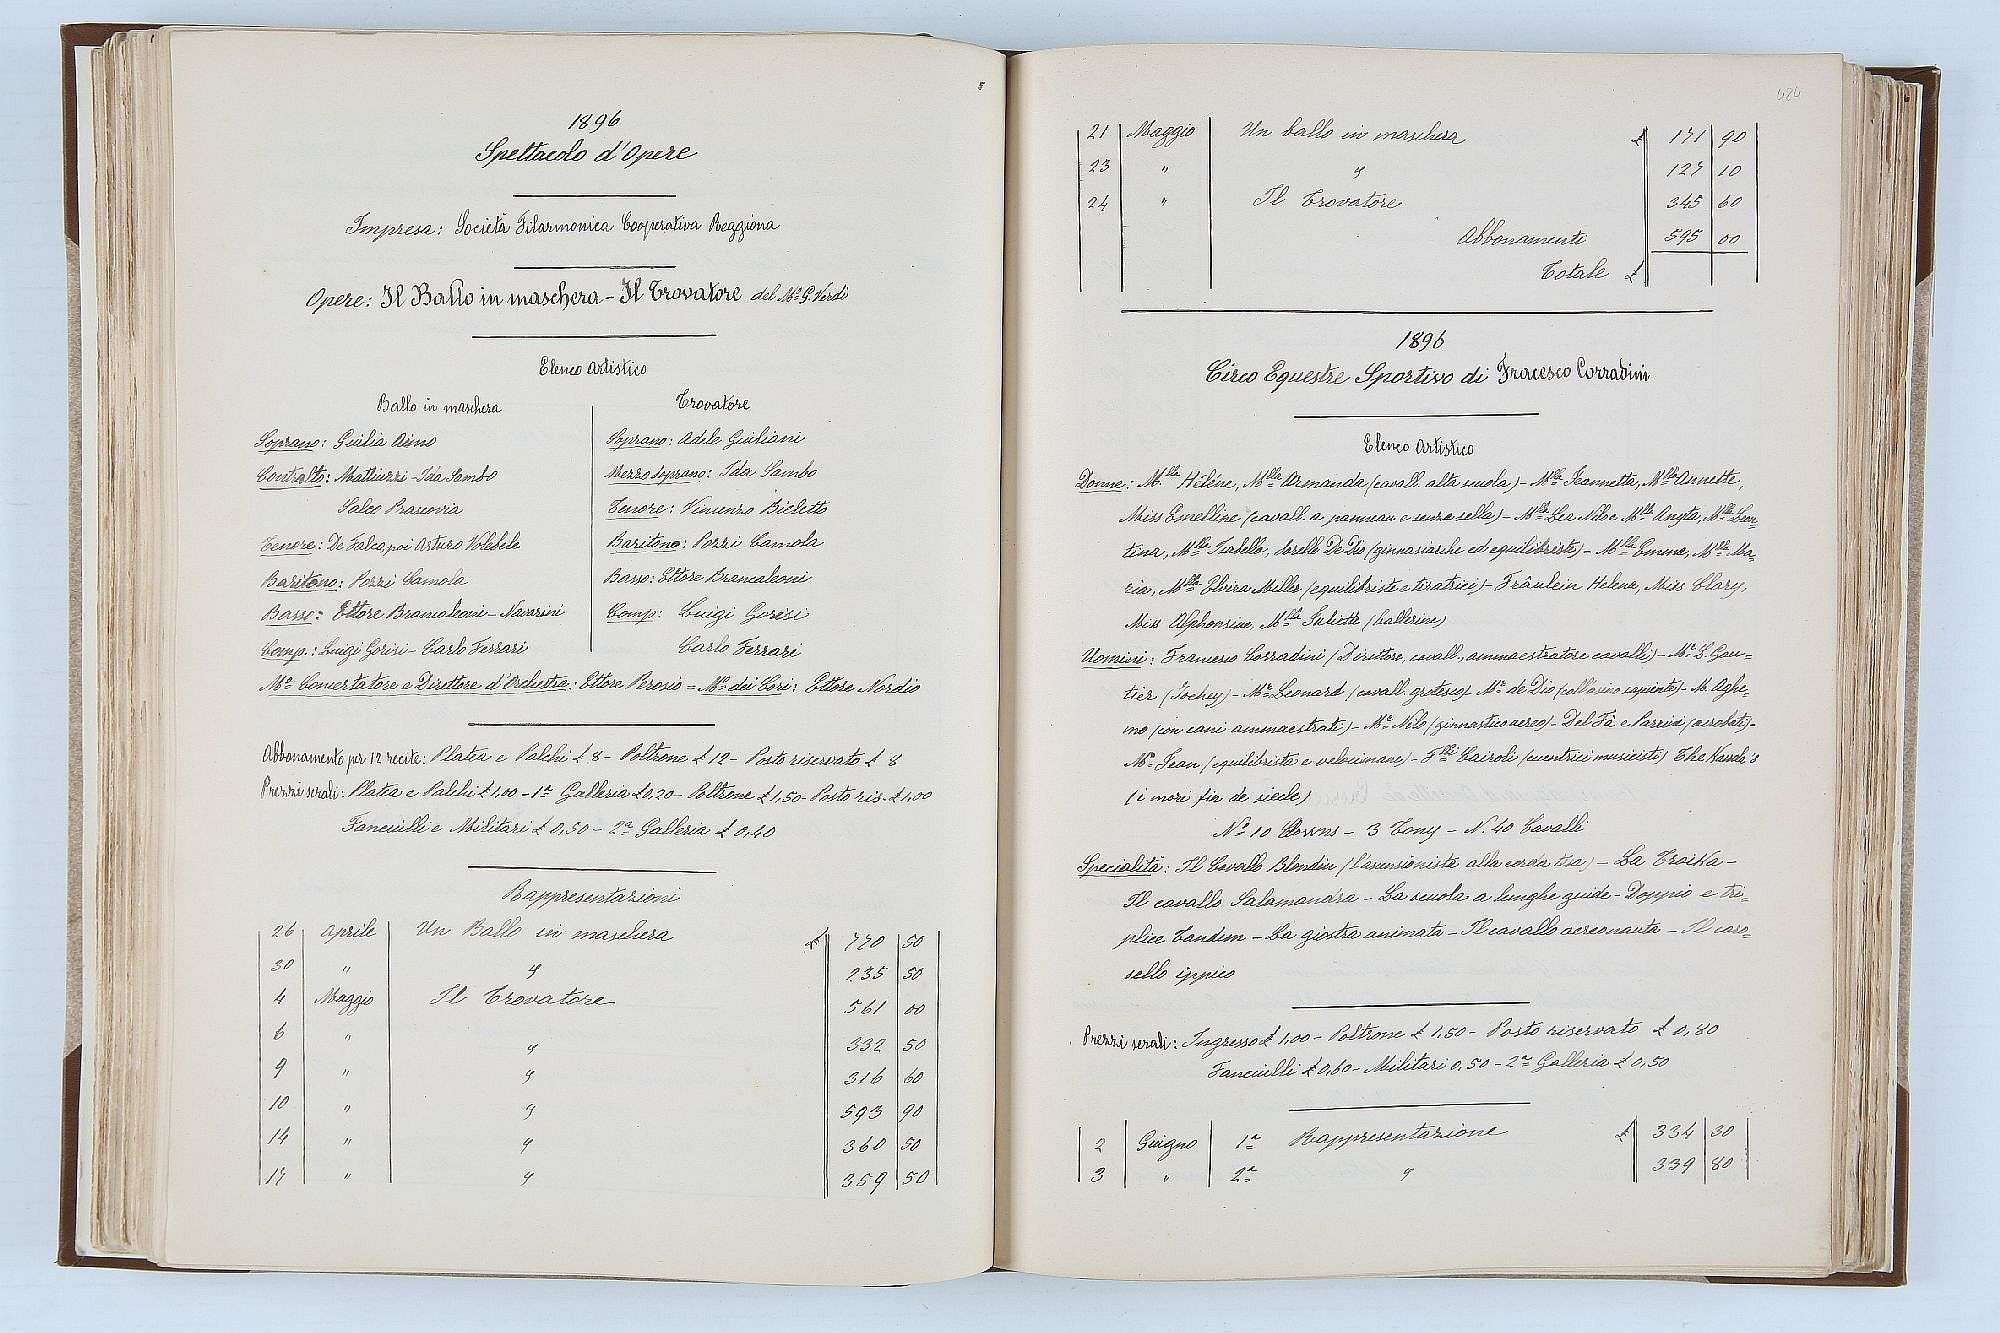 1896
Spettacolo d'Opere
Impresa: Società Filarmonica Cooperativa Reggiana
Opere: Il Ballo in maschera - Il Trovatore del Mº G. Verdi
Elenco Artistico
Ballo in maschera
Soprano: Giulia Aimo
Contralto: Mattiuzzi - Ida Sambo
Salce Prascovia
Tenore: De Falco, poi Arturo
Baritono: Pozzi Camola
Basso: Ettore Brancaleoni - Navarini
Comp.: Luigi Gorisi - Carlo Ferrari
Trovatore
Soprano: Adele Giuliani
Mezzo soprano: Ida Sambo
Tenore: Vincenzo Bieletto
Baritono: Pozzi Camola
Basso: Ettore Brancaleoni
Comp: Luigi Gorisi
Carlo Ferrari
Mº Concertatore e Direttore d'Orchestra: Ettore Perosio = Mº dei Cori: Ettore Nordio
Abbonamento per 12 recite: Platea e Palchi £ 8 - Poltrone £ 12 - Posto riservato £ 8
Prezzi serali: Platea e Palchi £ 1,00 - 1ª Galleria £ 0,20 - Poltrone £ 1,50 - Posto ris. £ 1,00
Fanciulli e Militari £ 0,50 - 2ª Galleria £ 0,40
Rappresentazioni
26 Aprile Un Ballo in maschera £ 770 50
30 " " 235 50
4 Maggio Il Trovatore 561 00
6 " " 332 50
9 " " 316 60
10 " " 593 90
14 " " 360 50
17 " " 359 50
21 Maggio Un ballo in maschera £ 171 90
23 " " 127 10
24 " Il Trovatore 345 60
Abbonamenti 595 00
Totale £
1896
Circo Equestre Sportivo di Fracesco Corradini
Elenco Artistico
Donne: M.lla Hilène, M.lla Armanda (cavall. alta scuola) - M.lla Jeannetta, M.lla Annette,
Miss Emelline (cavall. a panneau e senza sella) - M.lla Lea Nilo e M.lla Angta, M.lla Leon-
tina, M.lla Isabella, sorelle De Dio (ginnasiarche ed equilibriste) - M.lla Emma, M.lla Ma-
ria, M.lla Elvira Miller (equilibriste e tiratrici) - Fräulein Helena, Miss Clary,
Miss Alphonsine, M.lla Juliette (ballerine)
Uomini: Francesco Corradini (Direttore, cavall., ammaestratore cavalli) - Mr. L. Gau-
tier (Jockey) - Mr. Leonard (cavall. grotesco) Mr. de Dio (pallasino sapiente) - M. Aghe-
mo (con cani ammaestrati) - Mr. Nilo (ginnastico aereo) - Del Fà e Parrini (acrobati) -
Mr. Jean (equilibrista e velocimane) - F.lli Cairoli (eccentrici musicisti) The Nassda's
(i mori fin de siecle)
Nº 10 Clowns - 3 Tony - N. 40 Cavalli
Specialità: Il Cavallo Blondin (l'ascensionista alla corda tesa) - La Troika -
Il cavallo Salamandra - La scuola a lunghe guide - Doppio e tri-
plice Tandem - La giostra animata - Il cavallo aereonauta - Il caro-
sello ippico
Prezzi serali: Ingresso £ 1,00 - Poltrone £ 1,50 - Posto riservato £ 0,80
Fanciulli £ 0,60 - Militari 0,50 - 2ª Galleria £ 0,50
2 Giugno 1ª Rappresentazione £ 334 30
3 " 2ª " 339 80